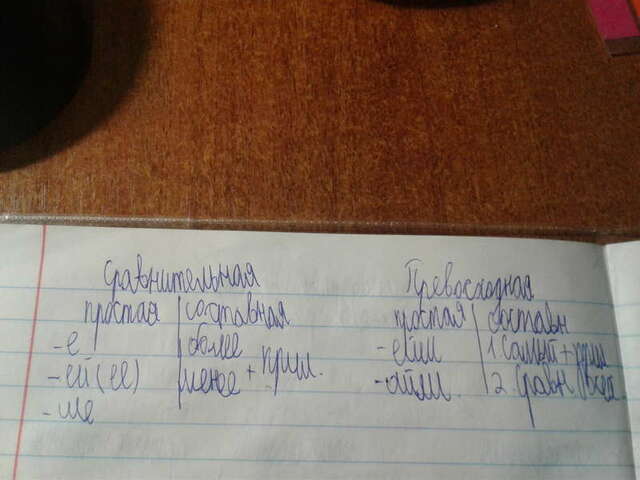 Сравнительная Превосходная
простая составная простая составн
-е более -ейш 1. Самый + прил
-ей (ее) менее + прил. -айш 2. Сравн всех
-ше